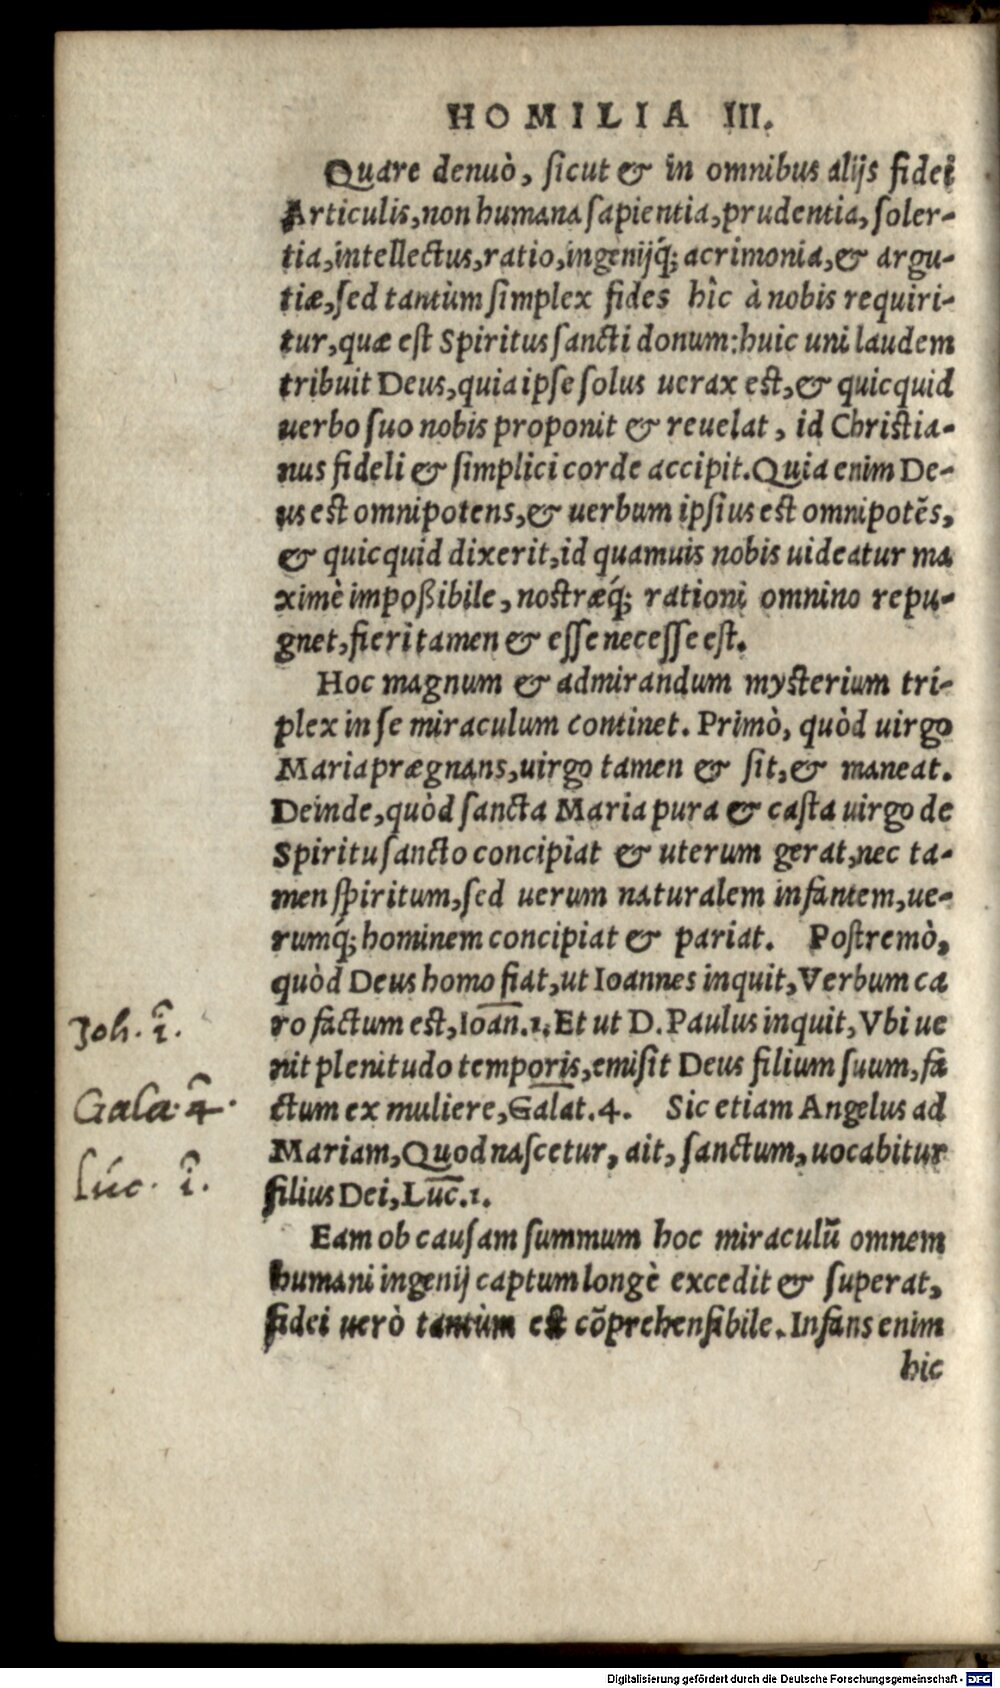 HOMILIA III.
Quare denuò, sicut & in omnibus alijs fidei
Articulis, non humana sapientia, prudentia, soler-
tia, intellectus, ratio, ingenijq́; acrimonia, & argu-
tiæ, sed tantùm simplex fides hîc à nobis requiri-
tur, quæ est Spiritus sancti donum: huic uni laudem
tribuit Deus, quia ipse solus uerax est, & quicquid
uerbo suo nobis proponit & reuelat, id Christia-
nus fideli & simplici corde accipit. Quia enim De-
us est omnipotens, & uerbum ipsius est omnipotẽs,
& quicquid dixerit, id quamuis nobis uideatur ma
ximè impoßibile, nostræq́; rationi omnino repu-
gnet, fieri tamen & esse necesse est.
Hoc magnum & admirandum mysterium tri-
plex in se miraculum continet. Primò, quòd uirgo
Maria prægnans, uirgo tamen & sit, & maneat.
Deinde, quòd sancta Maria pura & casta uirgo de
Spiritu sancto concipiat & uterum gerat, nec ta-
men spiritum, sed uerum naturalem infantem, ue-
rumq́; hominem concipiat & pariat. Postremò,
quòd Deus homo fiat, ut Ioannes inquit, Verbum ca
ro factum est, Ioan. 1. Et ut D. Paulus inquit, Vbi ue
nit plenitudo temporis, emisit Deus filium suum, fa
ctum ex muliere, Galat. 4. Sic etiam Angelus ad
Mariam, Quod nascetur, ait, sanctum, uocabitur
filius Dei, Luc. 1.
Eam ob causam summum hoc miraculũ omnem
humani ingenij captum longè excedit & superat,
fidei uerò tantùm est cõprehensibile. Infans enim
hic
Joh. 1.
Gala. 4.
Luc. 1.
Digitalisierung gefördert durch die Deutsche Forschungsgemeinschaft - DFG